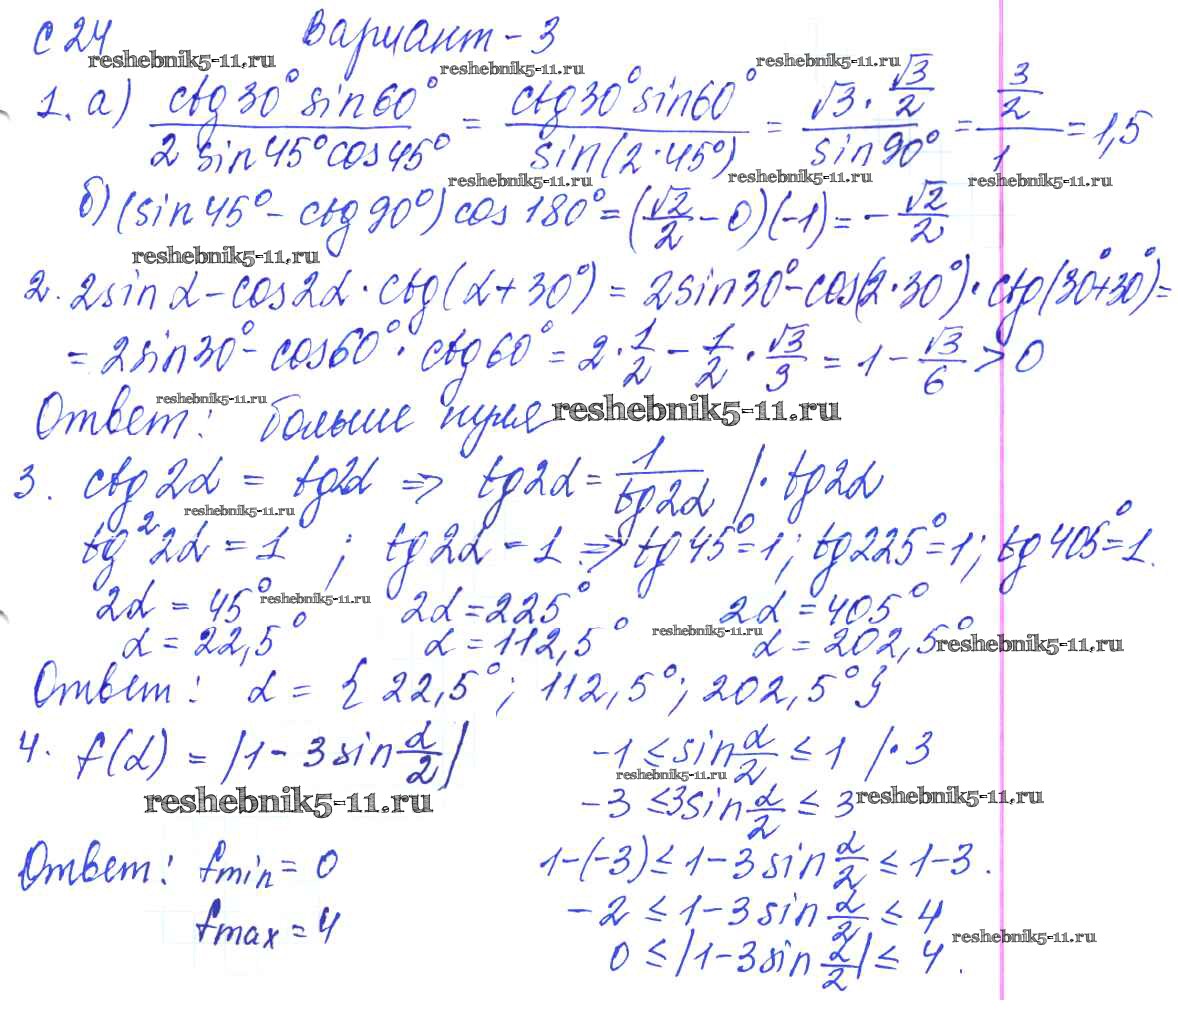 С 24 Вариант - 3
reshebnik5-11.ru reshebnik5-11.ru reshebnik5-11.ru
1. а) ctg30° sin60° / 2 sin45° cos45° = ctg30° sin60° / sin(2·45°) = √3 · √3/2 / sin90° = 3/2 / 1 = 1,5
reshebnik5-11.ru reshebnik5-11.ru reshebnik5-11.ru
б) (sin45° - ctg90°) cos 180° = (√2/2 - 0)(-1) = - √2/2
reshebnik5-11.ru
2. 2sin α - cos2α · ctg(α + 30°) = 2sin30° - cos(2·30°) · ctg(30°+30°) =
= 2sin30° - cos60° · ctg60° = 2 · 1/2 - 1/2 · √3/3 = 1 - √3/6 > 0
reshebnik5-11.ru
Ответ: больше нуля reshebnik5-11.ru
3. ctg2α = tg2α => tg2α = 1/tg2α |· tg2α
reshebnik5-11.ru
tg²2α = 1 ; tg2α - 1 => tg45° = 1; tg225° = 1; tg405° = 1.
2α = 45° reshebnik5-11.ru 2α = 225° 2α = 405°
α = 22,5° α = 112,5° reshebnik5-11.ru α = 202,5° reshebnik5-11.ru
Ответ: α = { 22,5°; 112,5°; 202,5° }
4. f(α) = |1 - 3sin α/2| -1 ≤ sin α/2 ≤ 1 |· 3
reshebnik5-11.ru
reshebnik5-11.ru -3 ≤ 3sin α/2 ≤ 3 reshebnik5-11.ru
Ответ: fmin = 0 1-(-3) ≤ 1 - 3sin α/2 ≤ 1-3.
fmax = 4 -2 ≤ 1 - 3sin α/2 ≤ 4
reshebnik5-11.ru
0 ≤ |1 - 3sin α/2| ≤ 4.